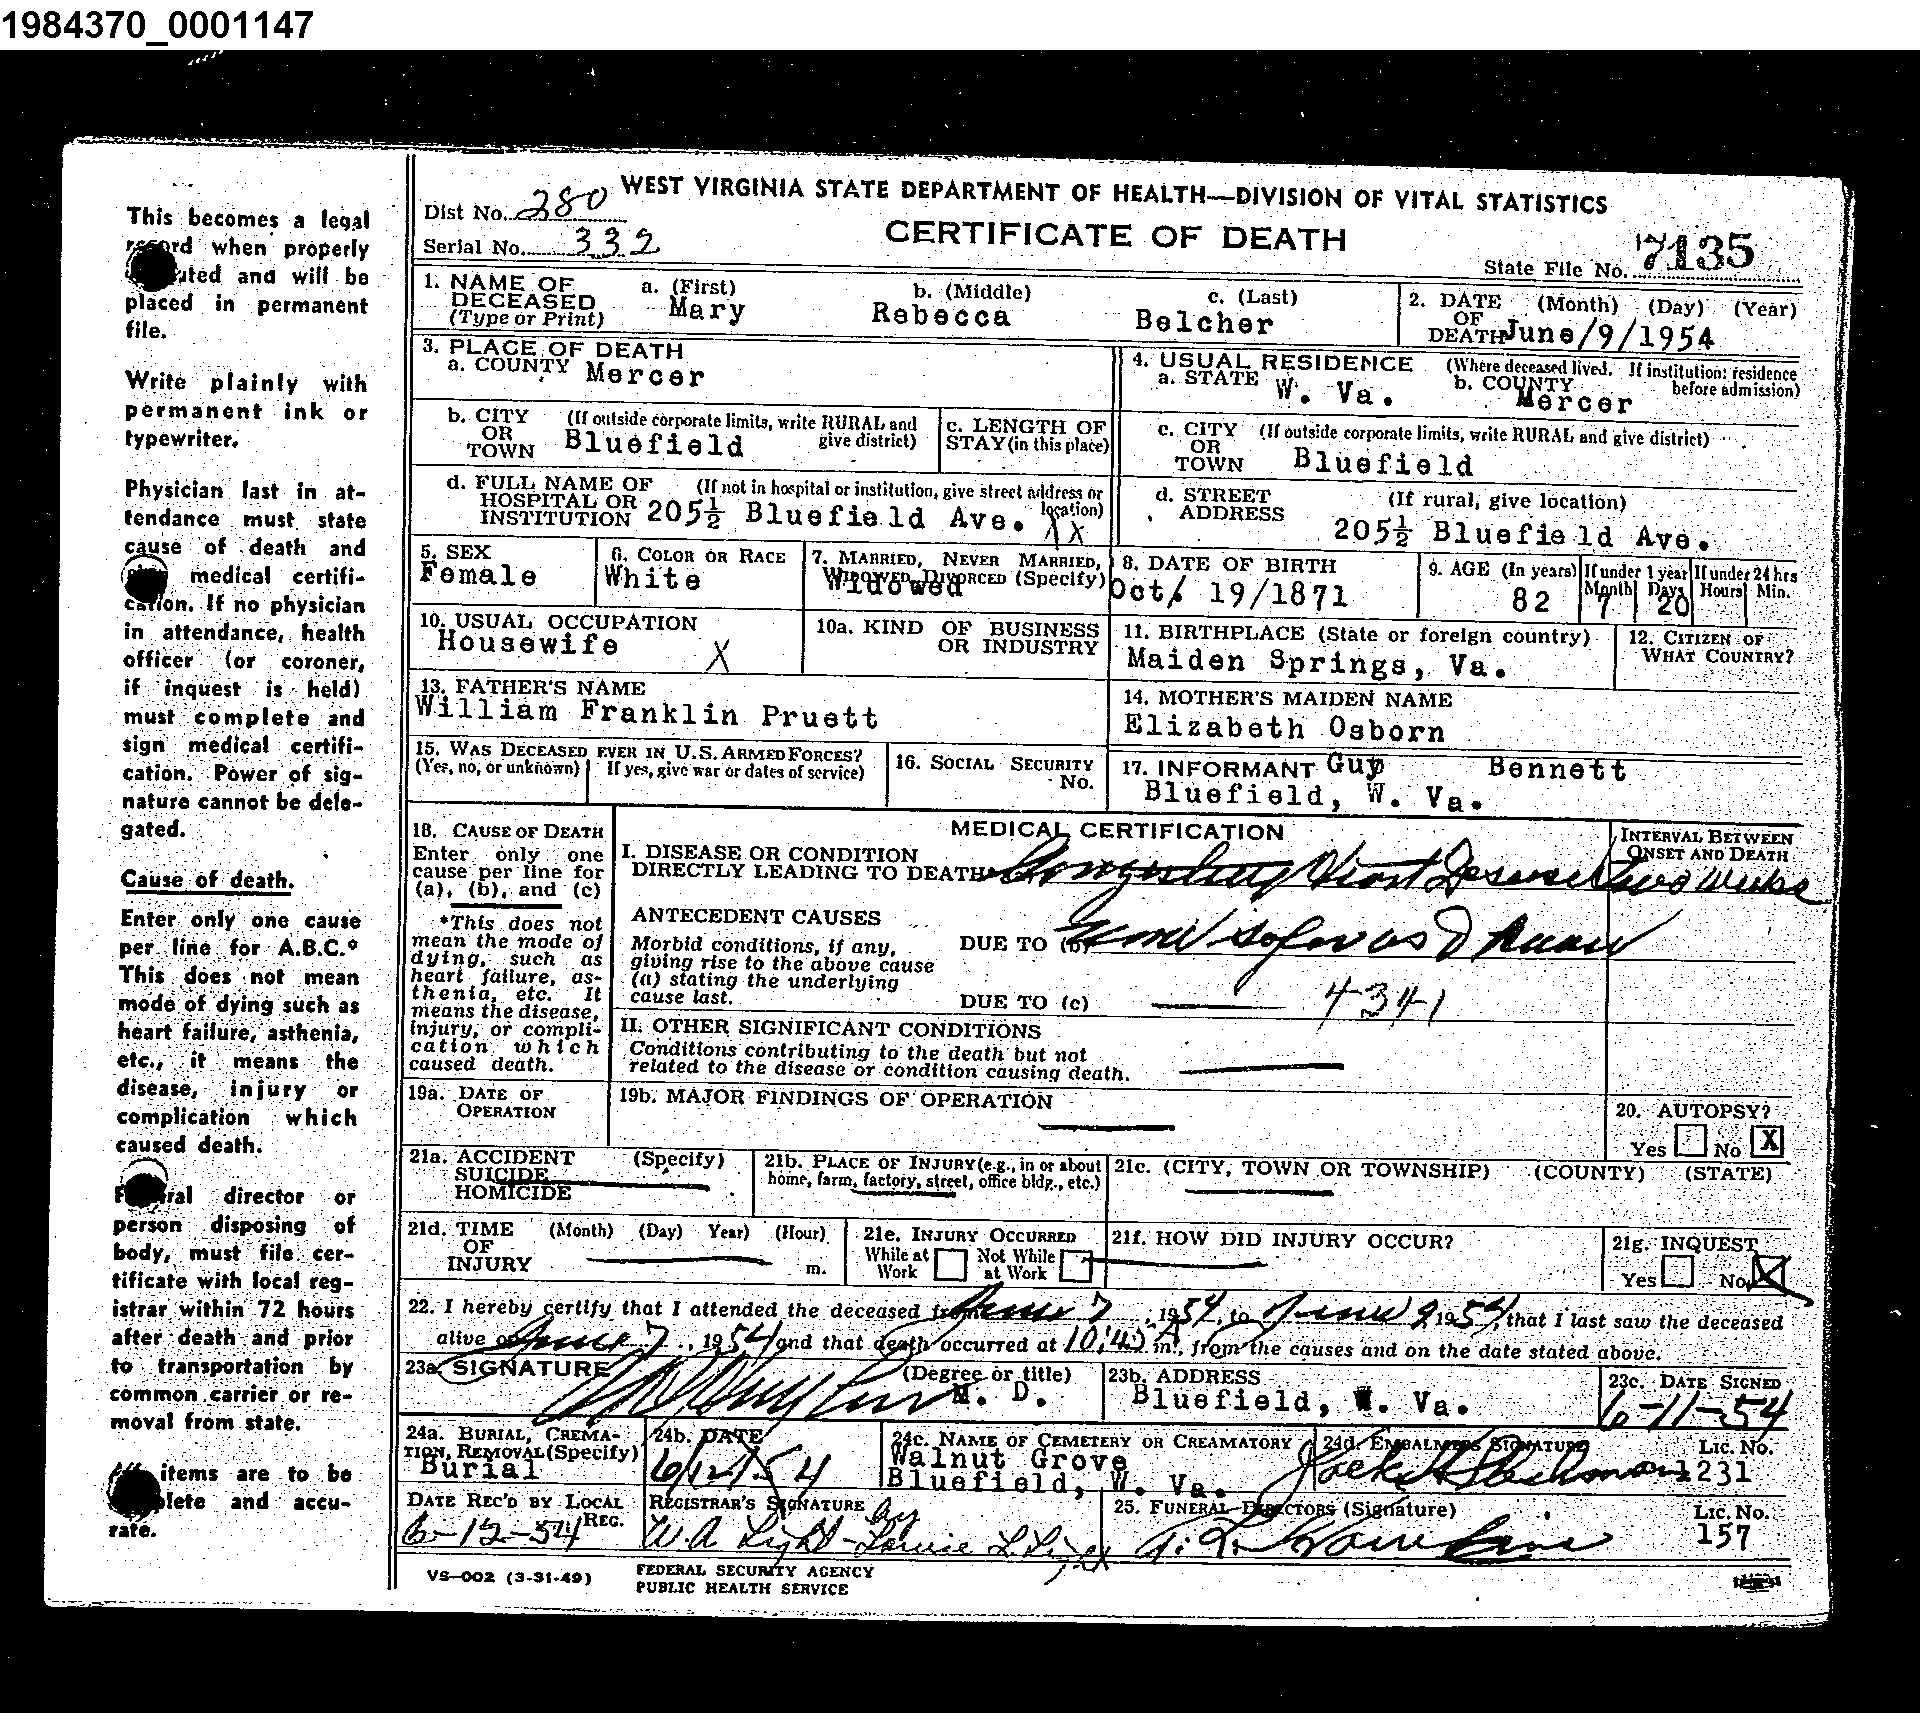 1984370_0001147
This becomes a legal
record when properly
placed in permanent
file.
Write plainly with
permanent ink or
typewriter.
Physician last in at-
tendance must state
cause of death and
medical certifi-
cation. If no physician
in attendance, health
officer (or coroner,
if inquest is held)
must complete and
sign medical certifi-
cation. Power of sig-
nature cannot be dele-
gated.
Cause of death.
Enter only one cause
per line for A.B.C.*
This does not mean
mode of dying such as
heart failure, asthenia,
etc., it means the
disease, injury or
complication which
caused death.
Funeral director or
person disposing of
body, must file cer-
tificate with local reg-
istrar within 72 hours
after death and prior
to transportation by
common carrier or re-
moval from state.
items are to be
and accu-
rate.
WEST VIRGINIA STATE DEPARTMENT OF HEALTH—DIVISION OF VITAL STATISTICS
Dist No. 280
CERTIFICATE OF DEATH
Serial No. 332
State File No. 7135
1. NAME OF DECEASED (Type or Print) a. (First) Mary b. (Middle) Rebecca c. (Last) Belcher
2. DATE OF DEATH (Month) (Day) (Year) June/9/1954
3. PLACE OF DEATH
a. COUNTY Mercer
4. USUAL RESIDENCE (Where deceased lived. If institution: residence before admission)
a. STATE W. Va. b. COUNTY Mercer
b. CITY OR TOWN (If outside corporate limits, write RURAL and give district) Bluefield
c. LENGTH OF STAY (in this place)
c. CITY OR TOWN (If outside corporate limits, write RURAL and give district) Bluefield
d. FULL NAME OF HOSPITAL OR INSTITUTION (If not in hospital or institution, give street address or location) 205½ Bluefield Ave. XX
d. STREET ADDRESS (If rural, give location) 205½ Bluefield Ave.
5. SEX Female
6. COLOR OR RACE White
7. MARRIED, NEVER MARRIED, WIDOWED, DIVORCED (Specify) Widowed
8. DATE OF BIRTH Oct/ 19/1871
9. AGE (In years) 82 If under 1 year Month 7 Days 20 If under 24 hrs Hours Min.
10. USUAL OCCUPATION Housewife X
10a. KIND OF BUSINESS OR INDUSTRY
11. BIRTHPLACE (State or foreign country) Maiden Springs, Va.
12. CITIZEN OF WHAT COUNTRY?
13. FATHER'S NAME William Franklin Pruett
14. MOTHER'S MAIDEN NAME Elizabeth Osborn
15. WAS DECEASED EVER IN U.S. ARMED FORCES? (Yes, no, or unknown) If yes, give war or dates of service)
16. SOCIAL SECURITY No.
17. INFORMANT Guy Bennett
Bluefield, W. Va.
18. CAUSE OF DEATH
Enter only one
cause per line for
(a), (b), and (c)
*This does not
mean the mode of
dying, such as
heart failure, as-
thenia, etc. It
means the disease,
injury, or compli-
cation which
caused death.
MEDICAL CERTIFICATION
INTERVAL BETWEEN ONSET AND DEATH
I. DISEASE OR CONDITION
DIRECTLY LEADING TO DEATH Heart two weeks
ANTECEDENT CAUSES
Morbid conditions, if any,
giving rise to the above cause
(a) stating the underlying
cause last.
DUE TO (b)
DUE TO (c) 4341
II. OTHER SIGNIFICANT CONDITIONS
Conditions contributing to the death but not
related to the disease or condition causing death.
19a. DATE OF OPERATION
19b. MAJOR FINDINGS OF OPERATION
20. AUTOPSY?
Yes No X
21a. ACCIDENT SUICIDE HOMICIDE (Specify)
21b. PLACE OF INJURY (e.g., in or about home, farm, factory, street, office bldg., etc.)
21c. (CITY, TOWN OR TOWNSHIP) (COUNTY) (STATE)
21d. TIME OF INJURY (Month) (Day) Year) (Hour) m.
21e. INJURY OCCURRED While at Work Not While at Work
21f. HOW DID INJURY OCCUR?
21g. INQUEST Yes No X
22. I hereby certify that I attended the deceased from June 7, 1954, to June 9 1954, that I last saw the deceased
alive on June 7, 1954 and that death occurred at 10:45 A m., from the causes and on the date stated above.
23a. SIGNATURE (Degree or title) M. D.
23b. ADDRESS Bluefield, W. Va.
23c. DATE SIGNED 6-11-54
24a. BURIAL, CREMATION, REMOVAL (Specify) Burial
24b. DATE 6/12/54
24c. NAME OF CEMETERY OR CREAMATORY Walnut Grove
Bluefield, W. Va.
24d. EMBALMERS SIGNATURE Lic. No. 1231
DATE REC'D BY LOCAL REG. 6-12-54
REGISTRAR'S SIGNATURE W. A. Light - by Louise L.
25. FUNERAL DIRECTORS (Signature) Lic. No. 157
VS-002 (3-31-49)
FEDERAL SECURITY AGENCY
PUBLIC HEALTH SERVICE